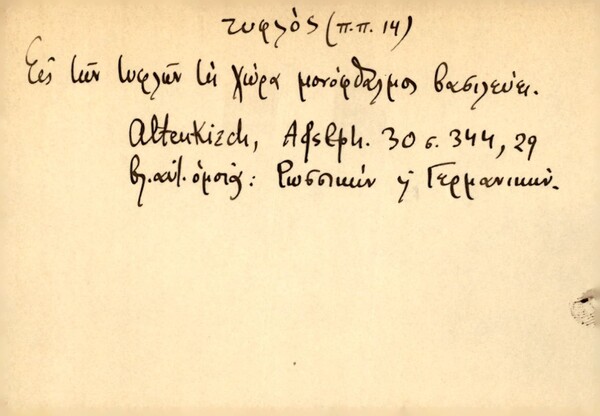 τυφλὸς (π.π. 14)
Εἰς τῶν τυφλῶν τὴ χώρα μονόφθαλμος βασιλεύει.
Altenkirch, AfslPh. 30 σ. 344, 29
βλ. αὐτ. ὅμοια: Ρωσσικὴν ἢ Γερμανικὴν.